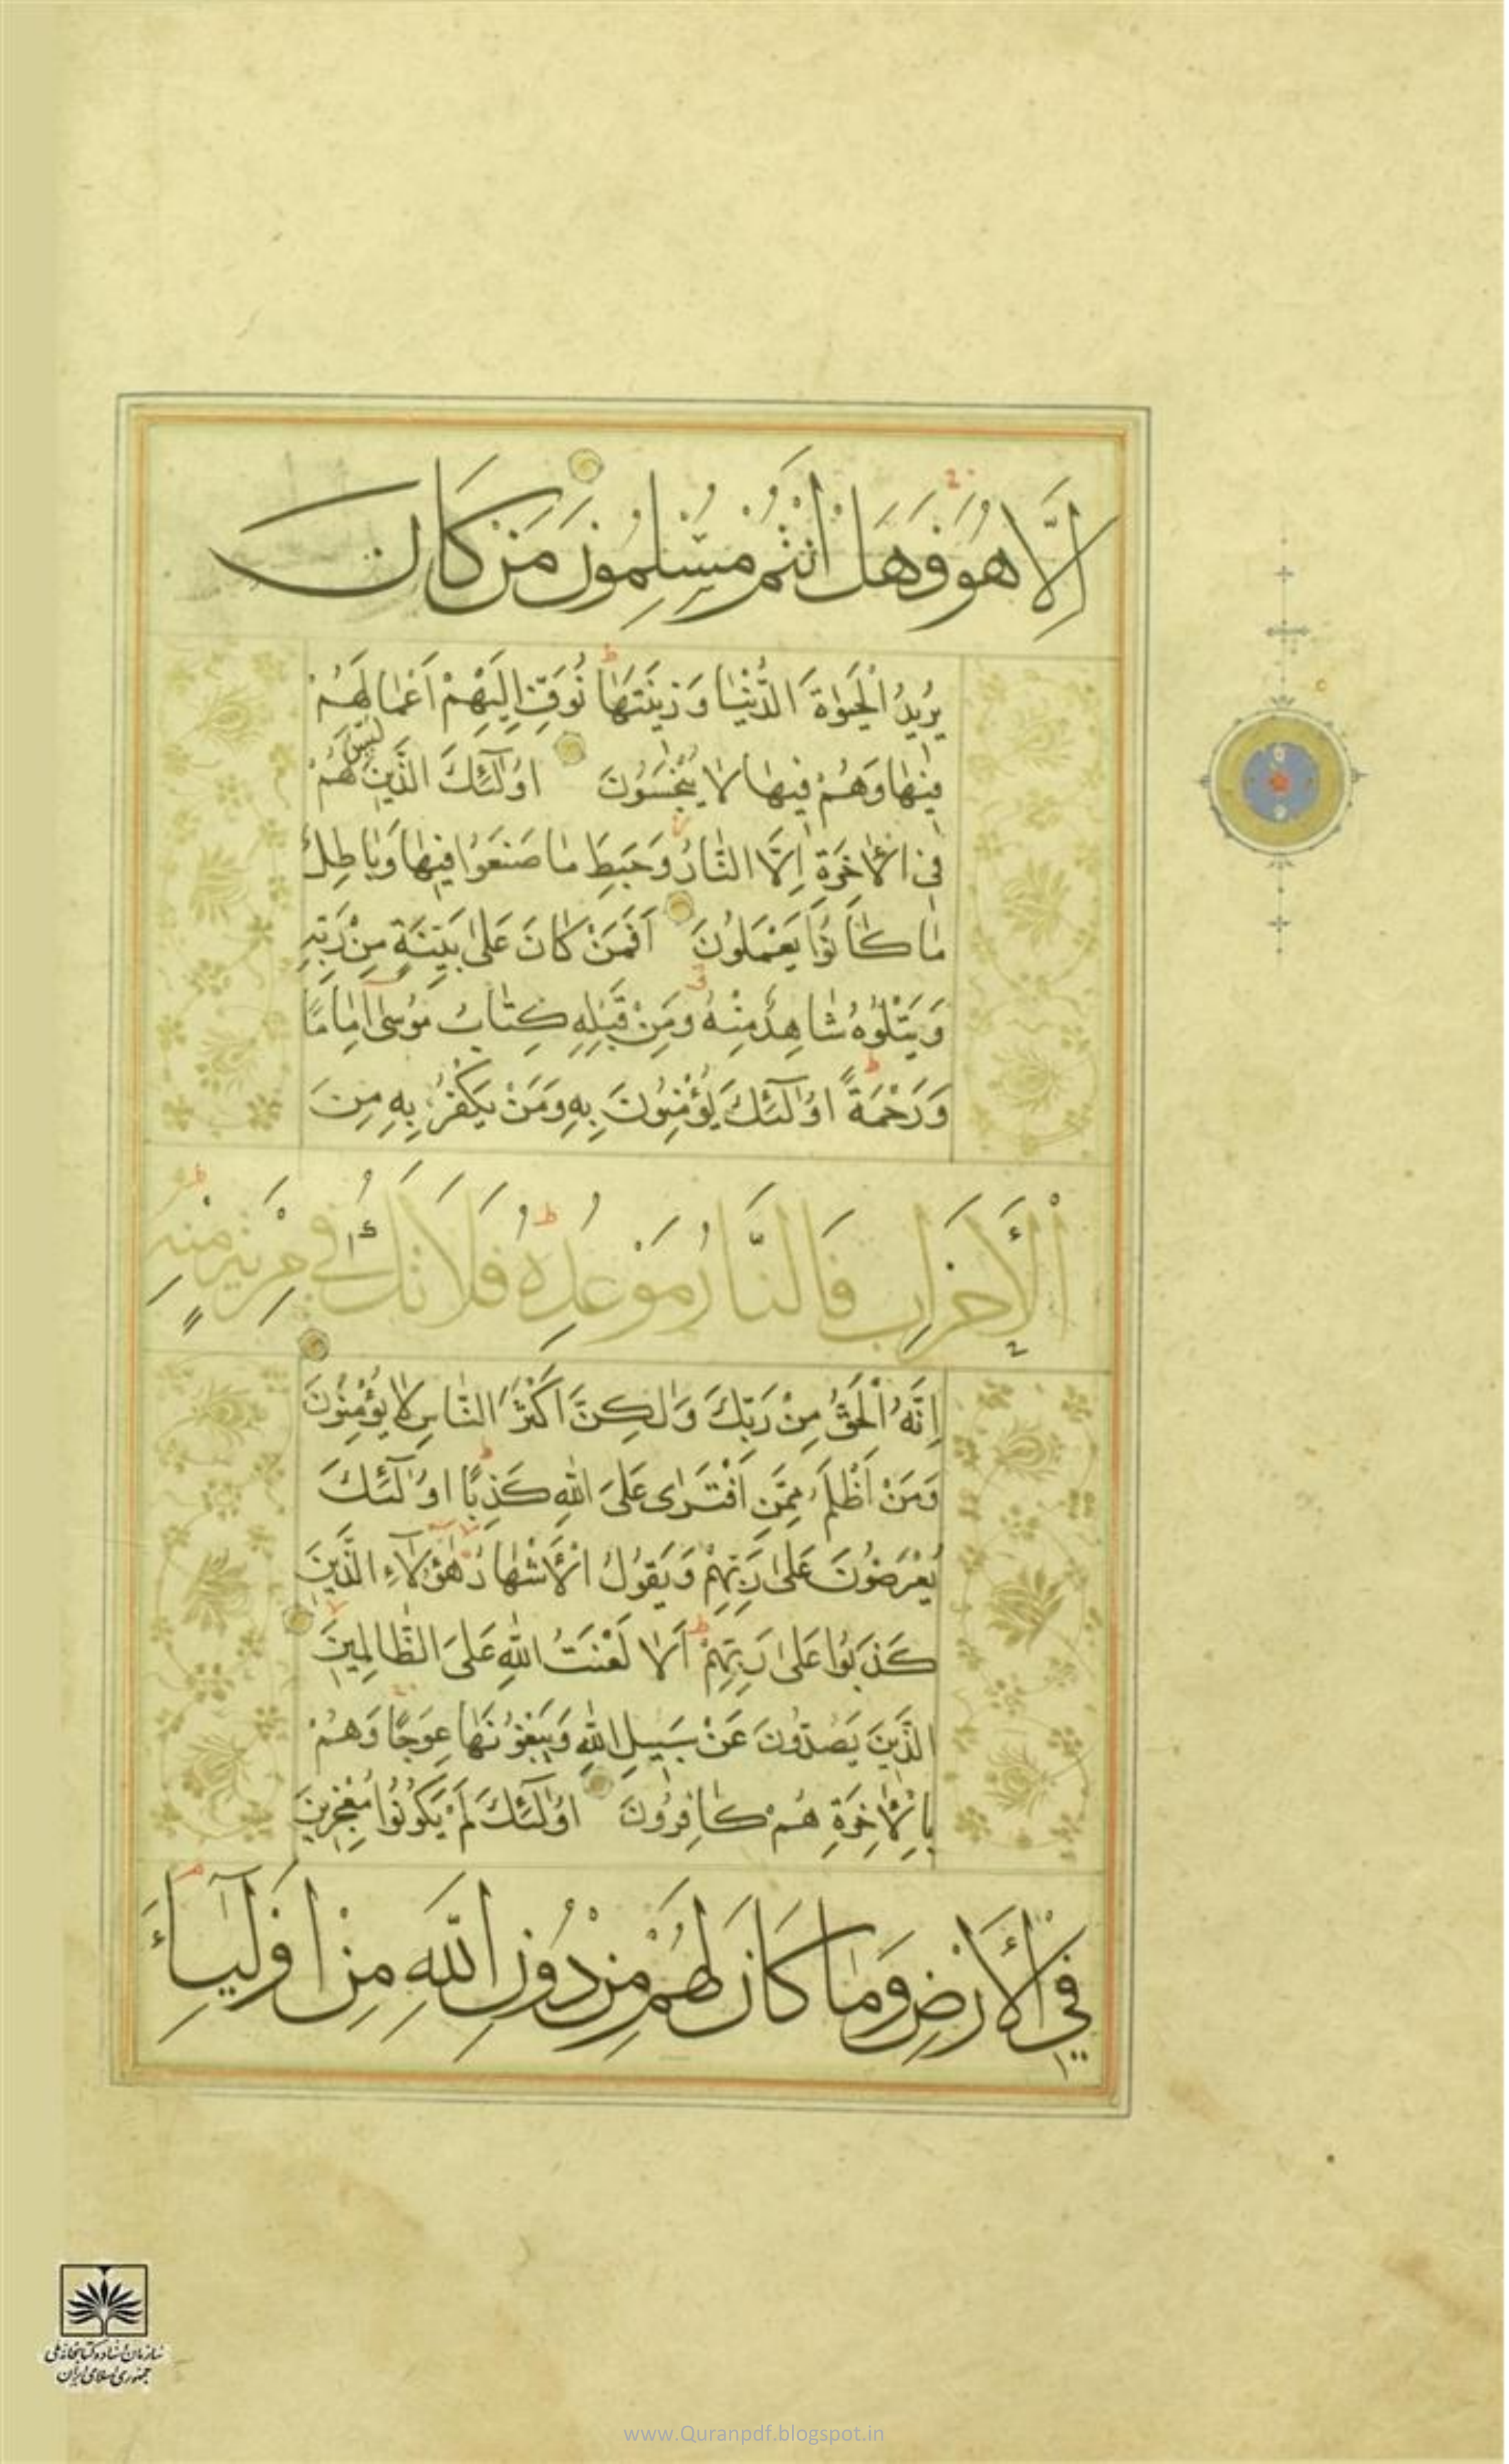 اِلَّا هُوَ فَهَلْ اَنْتُمْ مُسْلِمُونَ مَنْ كَانَ
يُرِيدُ الْحَيٰوةَ الدُّنْيٰا وَ زِينَتَهٰا نُوَفِّ اِلَيْهِمْ اَعْمٰالَهُمْ
فِيهٰا وَهُمْ فِيهٰا لٰا يُبْخَسُونَ اُولٰٓئِكَ الَّذِينَ لَيْسَ لَهُمْ
فِي الْاٰخِرَةِ اِلَّا النّٰارُ وَحَبِطَ مٰا صَنَعُوا فِيهٰا وَبٰاطِلٌ
مٰا كٰانُوا يَعْمَلُونَ اَفَمَنْ كٰانَ عَلىٰ بَيِّنَةٍ مِنْ رَبِّهِ
وَيَتْلُوهُ شٰاهِدٌ مِنْهُ وَمِنْ قَبْلِهِ كِتٰابُ مُوسىٰ اِمٰامًا
وَرَحْمَةً اُولٰٓئِكَ يُؤْمِنُونَ بِهِ وَمَنْ يَكْفُرْ بِهِ مِنَ
الْأَحْزَابِ فَالنَّارُ مَوْعِدُهُ فَلَا تَكُ فِي مِرْيَةٍ مِنْهُ
اِنَّهُ الْحَقُّ مِنْ رَبِّكَ وَلٰكِنَّ اَكْثَرَ النّٰاسِ لٰا يُؤْمِنُونَ
وَمَنْ اَظْلَمُ مِمَّنِ افْتَرٰى عَلَى اللّٰهِ كَذِبًا اُولٰٓئِكَ
يُعْرَضُونَ عَلىٰ رَبِّهِمْ وَيَقُولُ الْأَشْهٰادُ هٰؤُلٰٓاءِ الَّذِينَ
كَذَبُوا عَلىٰ رَبِّهِمْ اَلٰا لَعْنَتُ اللّٰهِ عَلَى الظّٰالِمِينَ
الَّذِينَ يَصُدُّونَ عَنْ سَبِيلِ اللّٰهِ وَيَبْغُونَهٰا عِوَجًا وَهُمْ
بِالْاٰخِرَةِ هُمْ كٰافِرُونَ اُولٰٓئِكَ لَمْ يَكُونُوا مُعْجِزِينَ
فِي الْأَرْضِ وَمٰا كَانَ لَهُمْ مِنْ دُونِ اللّٰهِ مِنْ اَوْلِيَآءَ
سازمان اسناد و کتابخانه ملی
جمهوری اسلامی ایران
www.Quranpdf.blogspot.in